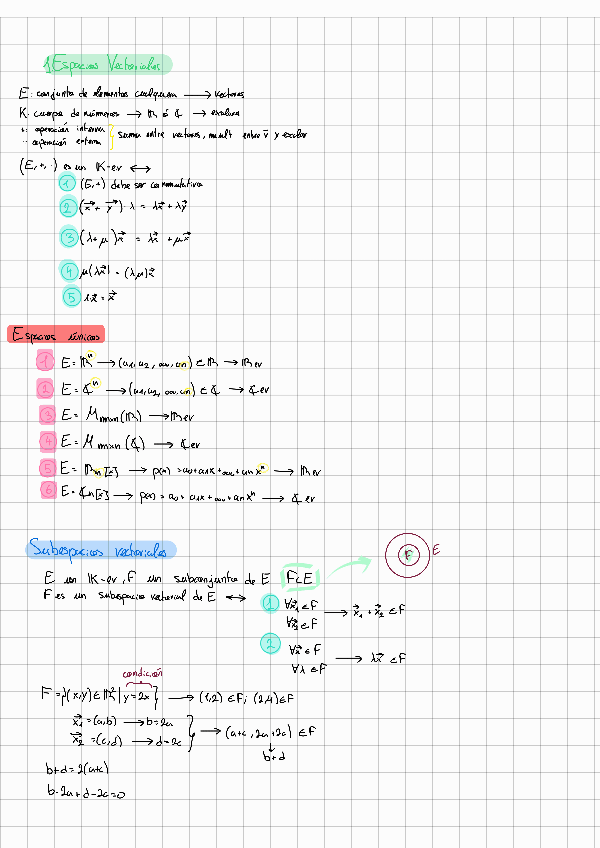 1 Espacios Vectoriales
E: conjunto de elementos cualquiera → vectores
K: cuerpo de números → ℝ ó ℂ → escalares
+: operación interna } suma entre vectores, mult entre v̄ y escalar
·: operación externa
(E, +, ·) es un K-ev ↔
1 (E, +) debe ser conmutativo
2 (x⃗ + y⃗) · λ = λx⃗ + λy⃗
3 (λ + μ) x⃗ = λx⃗ + μx⃗
4 μ(λx⃗) = (λμ)x⃗
5 1·x⃗ = x⃗
Espacios únicos
1 E = ℝⁿ → (a1, a2, ..., an) ∈ ℝ → ℝ ev
2 E = ℂⁿ → (a1, a2, ..., an) ∈ ℂ → ℂ ev
3 E = Mmxn(ℝ) → ℝ ev
4 E = Mmxn(ℂ) → ℂ ev
5 E = ℝn[x] → p(x) = a0 + a1x + ... + anxⁿ → ℝ ev
6 E = ℂn[x] → p(x) = a0 + a1x + ... + anxⁿ → ℂ ev
Subespacios vectoriales
F E
E un K-ev, F un subconjunto de E F⊂E
F es un subespacio vectorial de E ↔
1 ∀x⃗1 ∈ F → x⃗1 + x⃗2 ∈ F
∀x⃗2 ∈ F
2 ∀x⃗ ∈ F → λx⃗ ∈ F
∀λ ∈ F
condición
F = {(x,y) ∈ ℝ² | y = 2x} → (1,2) ∈ F; (2,4) ∈ F
x⃗1 = (a,b) → b = 2a } → (a+c, 2a+2c) ∈ F
x⃗2 = (c,d) → d = 2c
↓
b+d
b+d = 2(a+c)
b-2a+d-2c=0